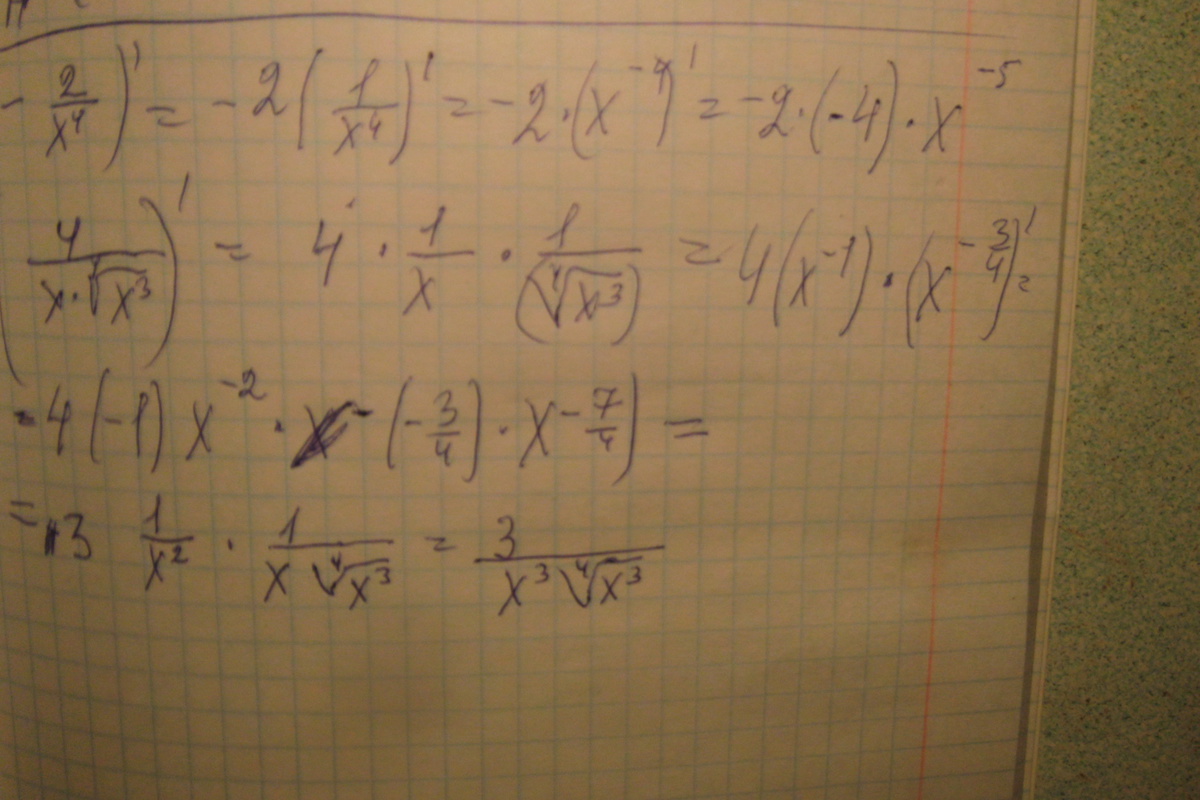 - 2/x⁴)' = -2(1/x⁴)' = -2·(x⁻⁴)' = -2·(-4)·x⁻⁵
(4/(x·√x³))' = 4·1/x·1/(∜x³) = 4(x⁻¹)·(x^(-3/4))' =
= 4(-1)x⁻²·(-3/4)·x^(-7/4)) =
= 3 1/x²·1/(x ∜x³) = 3/(x³ ∜x³)